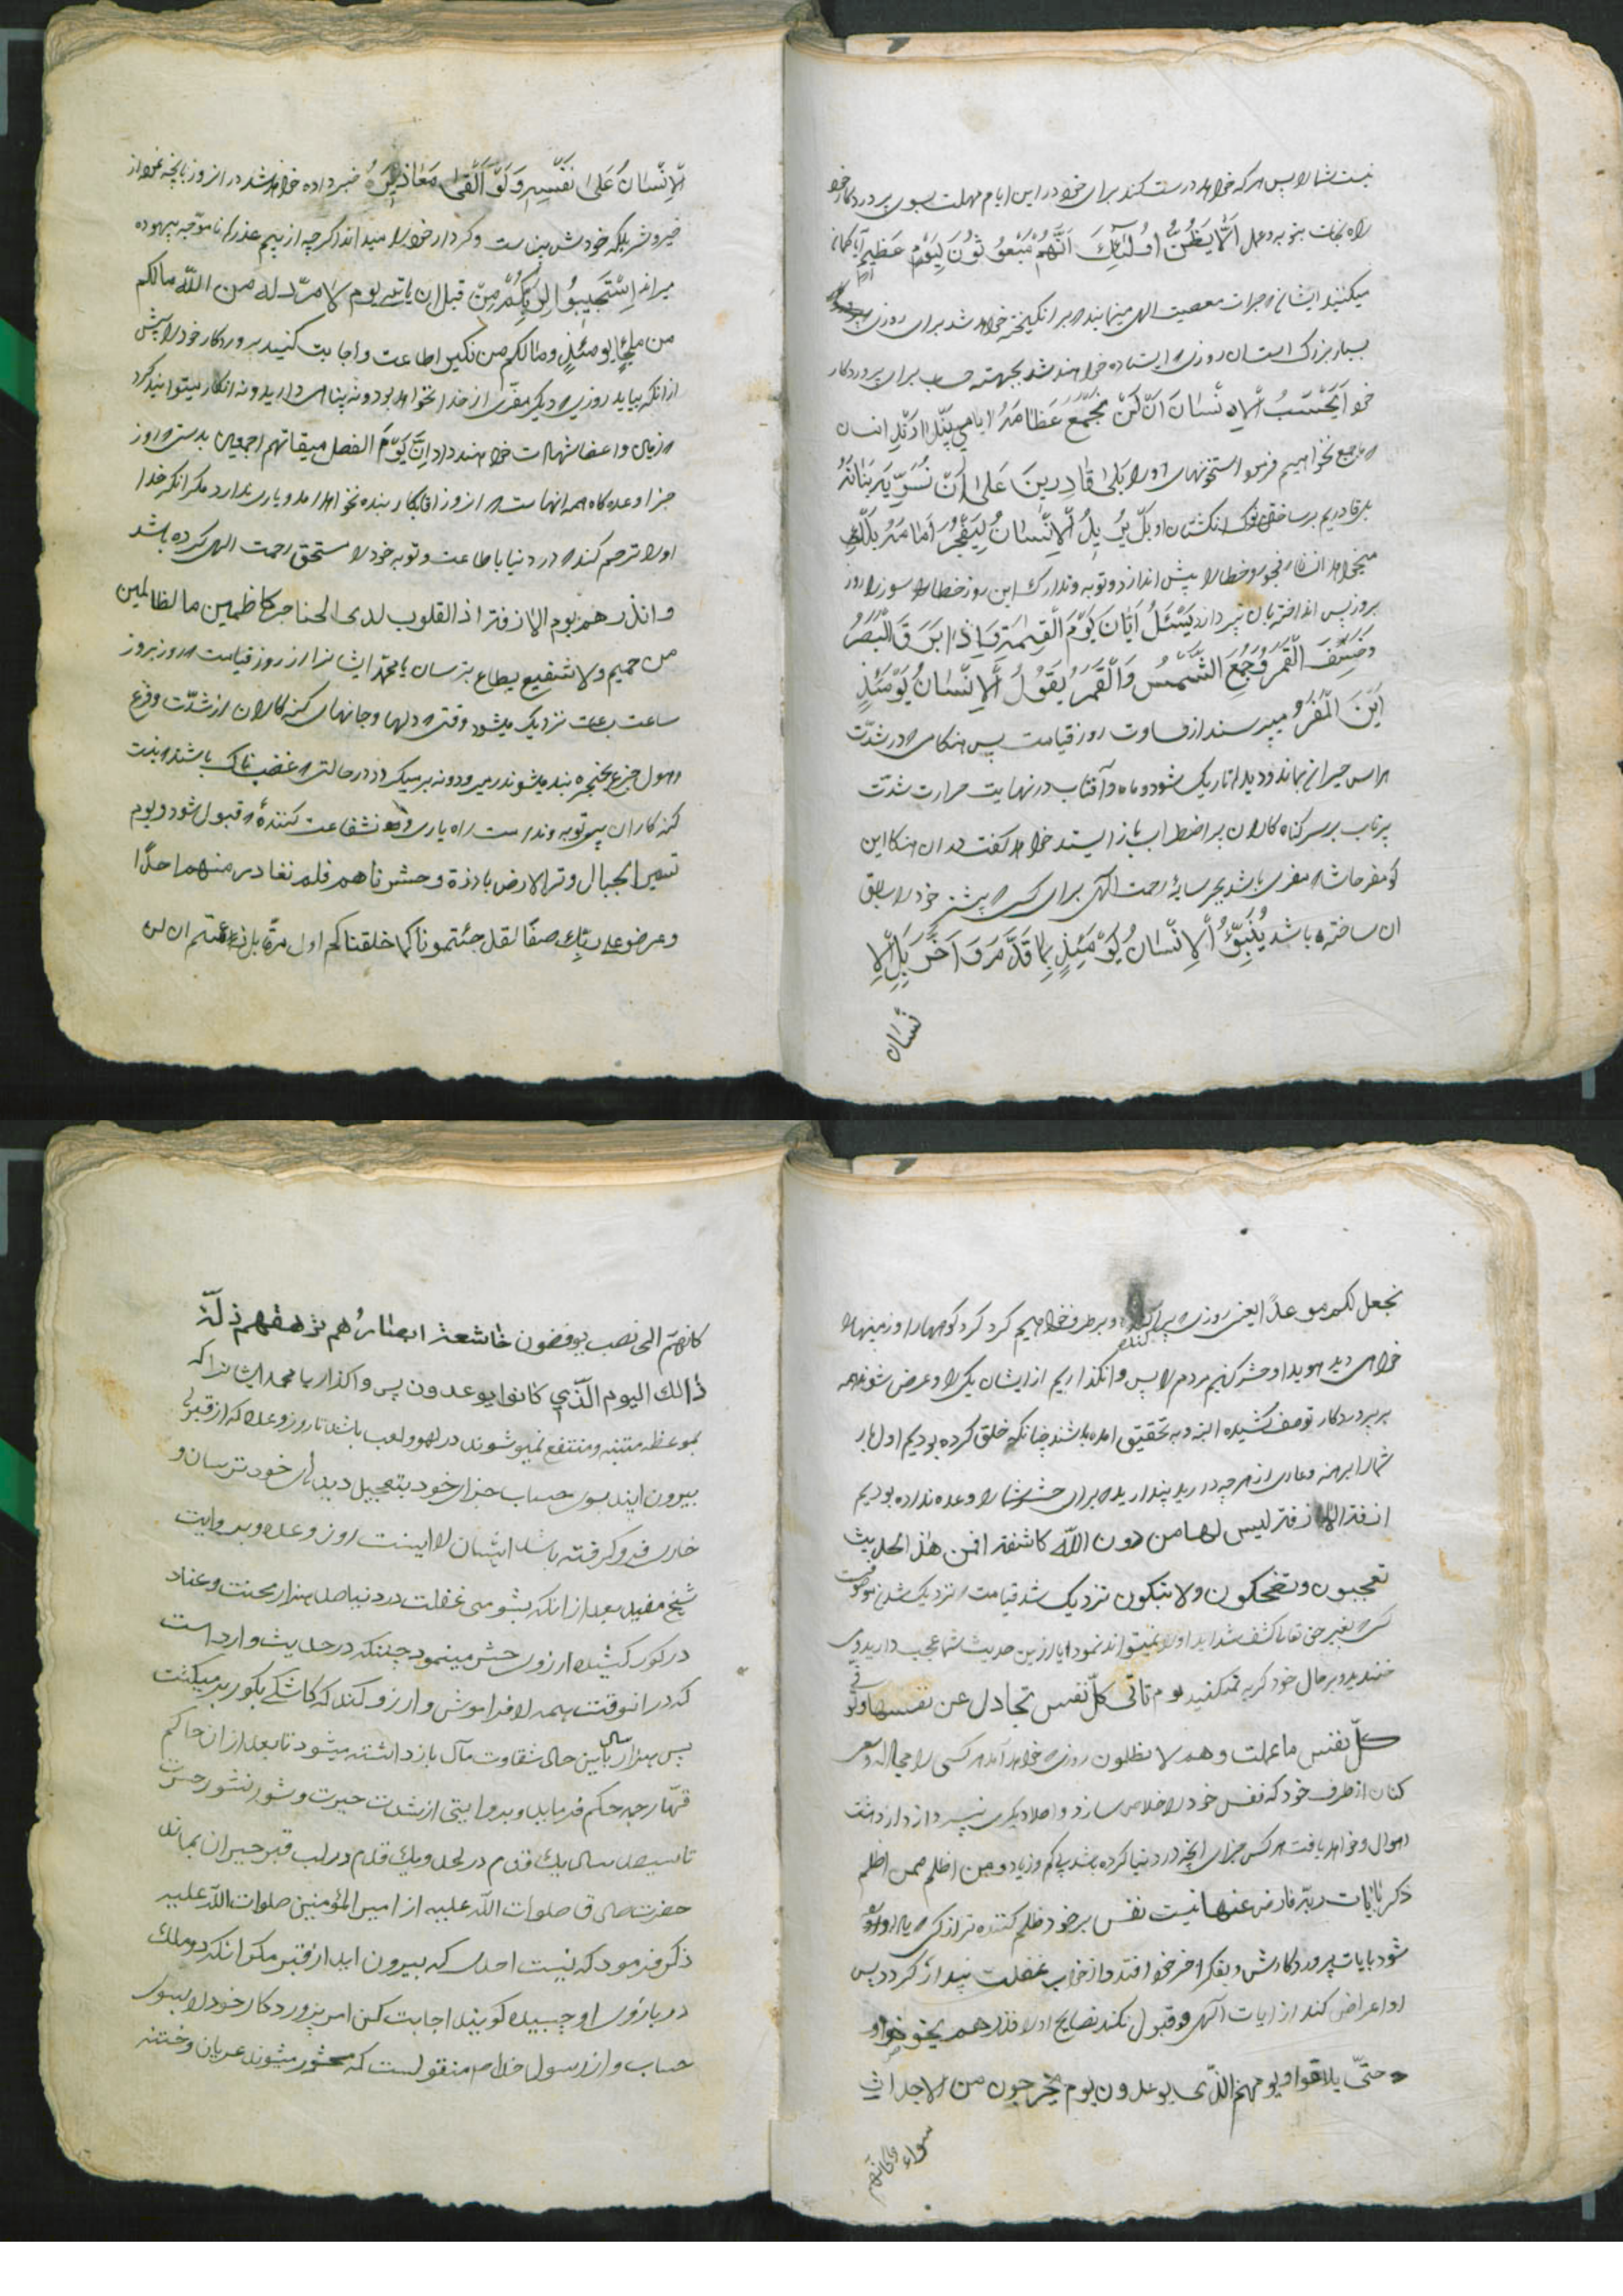 نیست شما را پس هر که خواهد درست کند برای خود در این ایام مهلت بسوی پروردکار خود
راه نجات بتوبه و عمل اَلَا یَظُنُّ اُولٰئِكَ اَنَّهُمْ مَبْعُوثُونَ لِیَوْمٍ عَظِیمٍ آیا کمان
میکنید ایشان که جرات معصیت الهی مینمایند که بر انکیخته خواهند شد برای روزی
بسیار بزرک است آن روزی که ایستاده خواهند شد بجهته حساب برای پروردکار
خود اَیَحْسَبُ الْاِنْسَانُ اَنْ لَنْ نَجْمَعَ عِظَامَهُ ایا می پندارد انسان
که جمع نخواهیم فرمود استخوانهای او را بَلٰی قَادِرِینَ عَلٰی اَنْ نُسَوِّیَ بَنَانَهُ
بلی قادریم بر ساختن نوک انکشتان او بَلْ یُرِیدُ الْاِنْسَانُ لِیَفْجُرَ اَمَامَهُ بلکه
میخواهد انسان فجور و خطا را پیش اندازد و توبه و تدارک این روز خطا را روز
بروز پس انداخته بان نپردازد یَسْئَلُ اَیَّانَ یَوْمُ الْقِیٰمَةِ فَاِذَا بَرِقَ الْبَصَرُ
وَخَسَفَ الْقَمَرُ وَجُمِعَ الشَّمْسُ وَالْقَمَرُ یَقُولُ الْاِنْسَانُ یَوْمَئِذٍ
اَیْنَ الْمَفَرُّ میپرسند از قساوت روز قیامت پس هنکامی که در شدّت
هراس حیران بماند و دیدها تاریک شود و ماه و آفتاب در نهایت حرارت شدّت
پرتاب بر سر کناه کاران پر اضطراب باز ایستد خواهد کفت در ان هنکام این
کو مفر حاشا که مفری باشد بجز سایهٔ رحمت الهی برای کسی که پیشتر خود را سابق
ان ساخته باشد یُنَبَّؤُ الْاِنْسَانُ یَوْمَئِذٍ بِمَا قَدَّمَ وَاَخَّرَ بَلِ الْاِ
نْسَان
لْاِنْسَانُ عَلٰی نَفْسِهِ وَلَوْ اَلْقٰی مَعَاذِیرَهُ خبر داده خواهد شد در انروز بانچه نمود از
خیر و شر بلکه خودش بیناست و کردار خود را میداند اکرچه از بیم عذرهای ناموجّه بیهوده
میراند اِسْتَجِیبُوا لِرَبِّكُمْ مِنْ قبل ان یاتی یوم لا مردّ له من اللّه مالكم
من ملجأٍ یومئذٍ ومالكم من نکیر اطاعت و اجابت کنید پروردکار خود را پیش
از انکه بیاید روزی که دیکر مفرّی از خدا نخواهد بود و نه پناهی دارید و نه انکار میتوانید کرد
که زبان و اعضا شهادت خواهند داد اِنَّ یَوْمَ الفصل میقاتهم اجمعین بدرستی که روز
جزا وعده کاه همه انهاست که انروز اقا بکار بنده نخواهد امد و یاری ندارد مکر انکه خدا
او را ترحم کند که در دنیا باطاعت و توبه خود را مستحق رحمت الهی کرده باشد
وانذرهم یوم الازفة اذ القلوب لدی الحناجر کاظمین ما لظالمین
من حمیم ولا شفیع یطاع بترسان یا محمّد ایشانرا از روز قیامت که روز بروز
ساعت بساعت نزدیک میشود وقتی که دلها و جانهای کنه کاران از شدّت و فزع
و هول جزع بحنجره بند میشوند نه میرود و نه برمیکردد در حالتی که غضبناک باشند که نیست
کنه کاران بی توبه و ندامت را یاری و نه شفاعت کنندهٔ که قبول شود و یوم
تسیر الجبال وتر الارض بارزة وحشرناهم فلم نغادر منهم احدًا
وعرضوا علی ربّك صفًا لقد جئتمونا كما خلقناكم اول مرّة بل زعمتم ان لن
نجعل لكم موعدًا یعنی روزی که پراکنده و برطرف خواهیم کرد کوهها را و زمینها را
خواهی دید هویدا و حشر کنیم مردم را پس وانکذاریم از ایشان یکی را و عرض شوند همه
بر پروردکار تو صف کشیده البته و به تحقیق امده باشند چنانکه خلق کرده بودیم اول بار
شما را برهنه و عاری از هرچه دارید پنداریدید که برای حشر شما را وعده نداده بودیم
ازفة الازفة لیس لها من دون اللّه کاشفة افمن هذا الحدیث
تعجبون وتضحكون ولا تبكون نزدیک شد قیامت که نزدیک شدن موصوفست
کسی که بغیر حق تعالی کشف شداید او را نمیتواند نمود ایا از این حدیث شما عجب دارید و می
خندید و بر حال خود کریه نمیکنید یوم تاتی كلّ نفس تجادل عن نفسها وتوفی
كلّ نفس ما عملت وهم لا یظلمون روزی که خواهد آمد هر کسی را مجادله و سعی
کنان از طرف خود که نفس خود را خلاص سازد و اصلا بدیکری نپردازد از دهشت
و اهوال و خواهد یافت هر کس جزای انچه در دنیا کرده باشد بی کم و زیاد ومن اظلم ممن
ذكر بایات ربّه فاعرض عنها نیست نفس بر خود ظلم کننده تر از کسی که یاد اورده
شود بایات پروردکارش و بفکر اخر خود افتد و از خواب غفلت بیدار کردد پس
او اعراض کند از ایات الهی و قبول نکند نصایح او را فذرهم یخوضوا و
حتّی یلاقوا یومهم الذّی یوعدون یوم یخرجون من الاجداث
سراعا کانهم
كانهم الی نصب یوفضون خاشعة ابصارهم ترهقهم ذلّة
ذالك الیوم الّذی كانوا یوعدون پس واکذار یا محمد ایشانرا که
بموعظه متنبه و منتفع نمیشوند در لهو و لعب باشند تا روز وعده که از قبرها
بیرون ایند بسوی حساب جزای خود بتعجیل دیدهای خود ترسان و
خاری فرو کرفته باشد ایشان را اینست روز وعده و بروایت
شیخ مفید بعد از انکه بشومی غفلت در دنیا صد هزار محنت و عناد
در کور کشیده ارزوی حشر مینمود چنانکه در حدیث وارد است
که در انوقت همه را فراموش و ارزو کند که کاشکی بکور برمیکشت
پس هزار سال باین حال شقاوت مآل باز داشته میشود تا بعد از ان حاکم
قهّار چه حکم فرماید و بروایتی از شدت حیرت و شور نشور حسرت
تا سیصد سال یك قدم در لحد و یك قدم در لب قبر حیران بماند
حضرت صادق صلوات اللّه علیه از امیر المؤمنین صلوات اللّه علیه
ذکر فرمود که نیست احدی که بیرون اید از قبر مکر انکه دو ملك
در بازوی او چسبیده کویند اجابت کن امر پروردکار خود را بسوی
حساب و از رسول خدا م منقولست که محشور میشوند عریان و ختنه